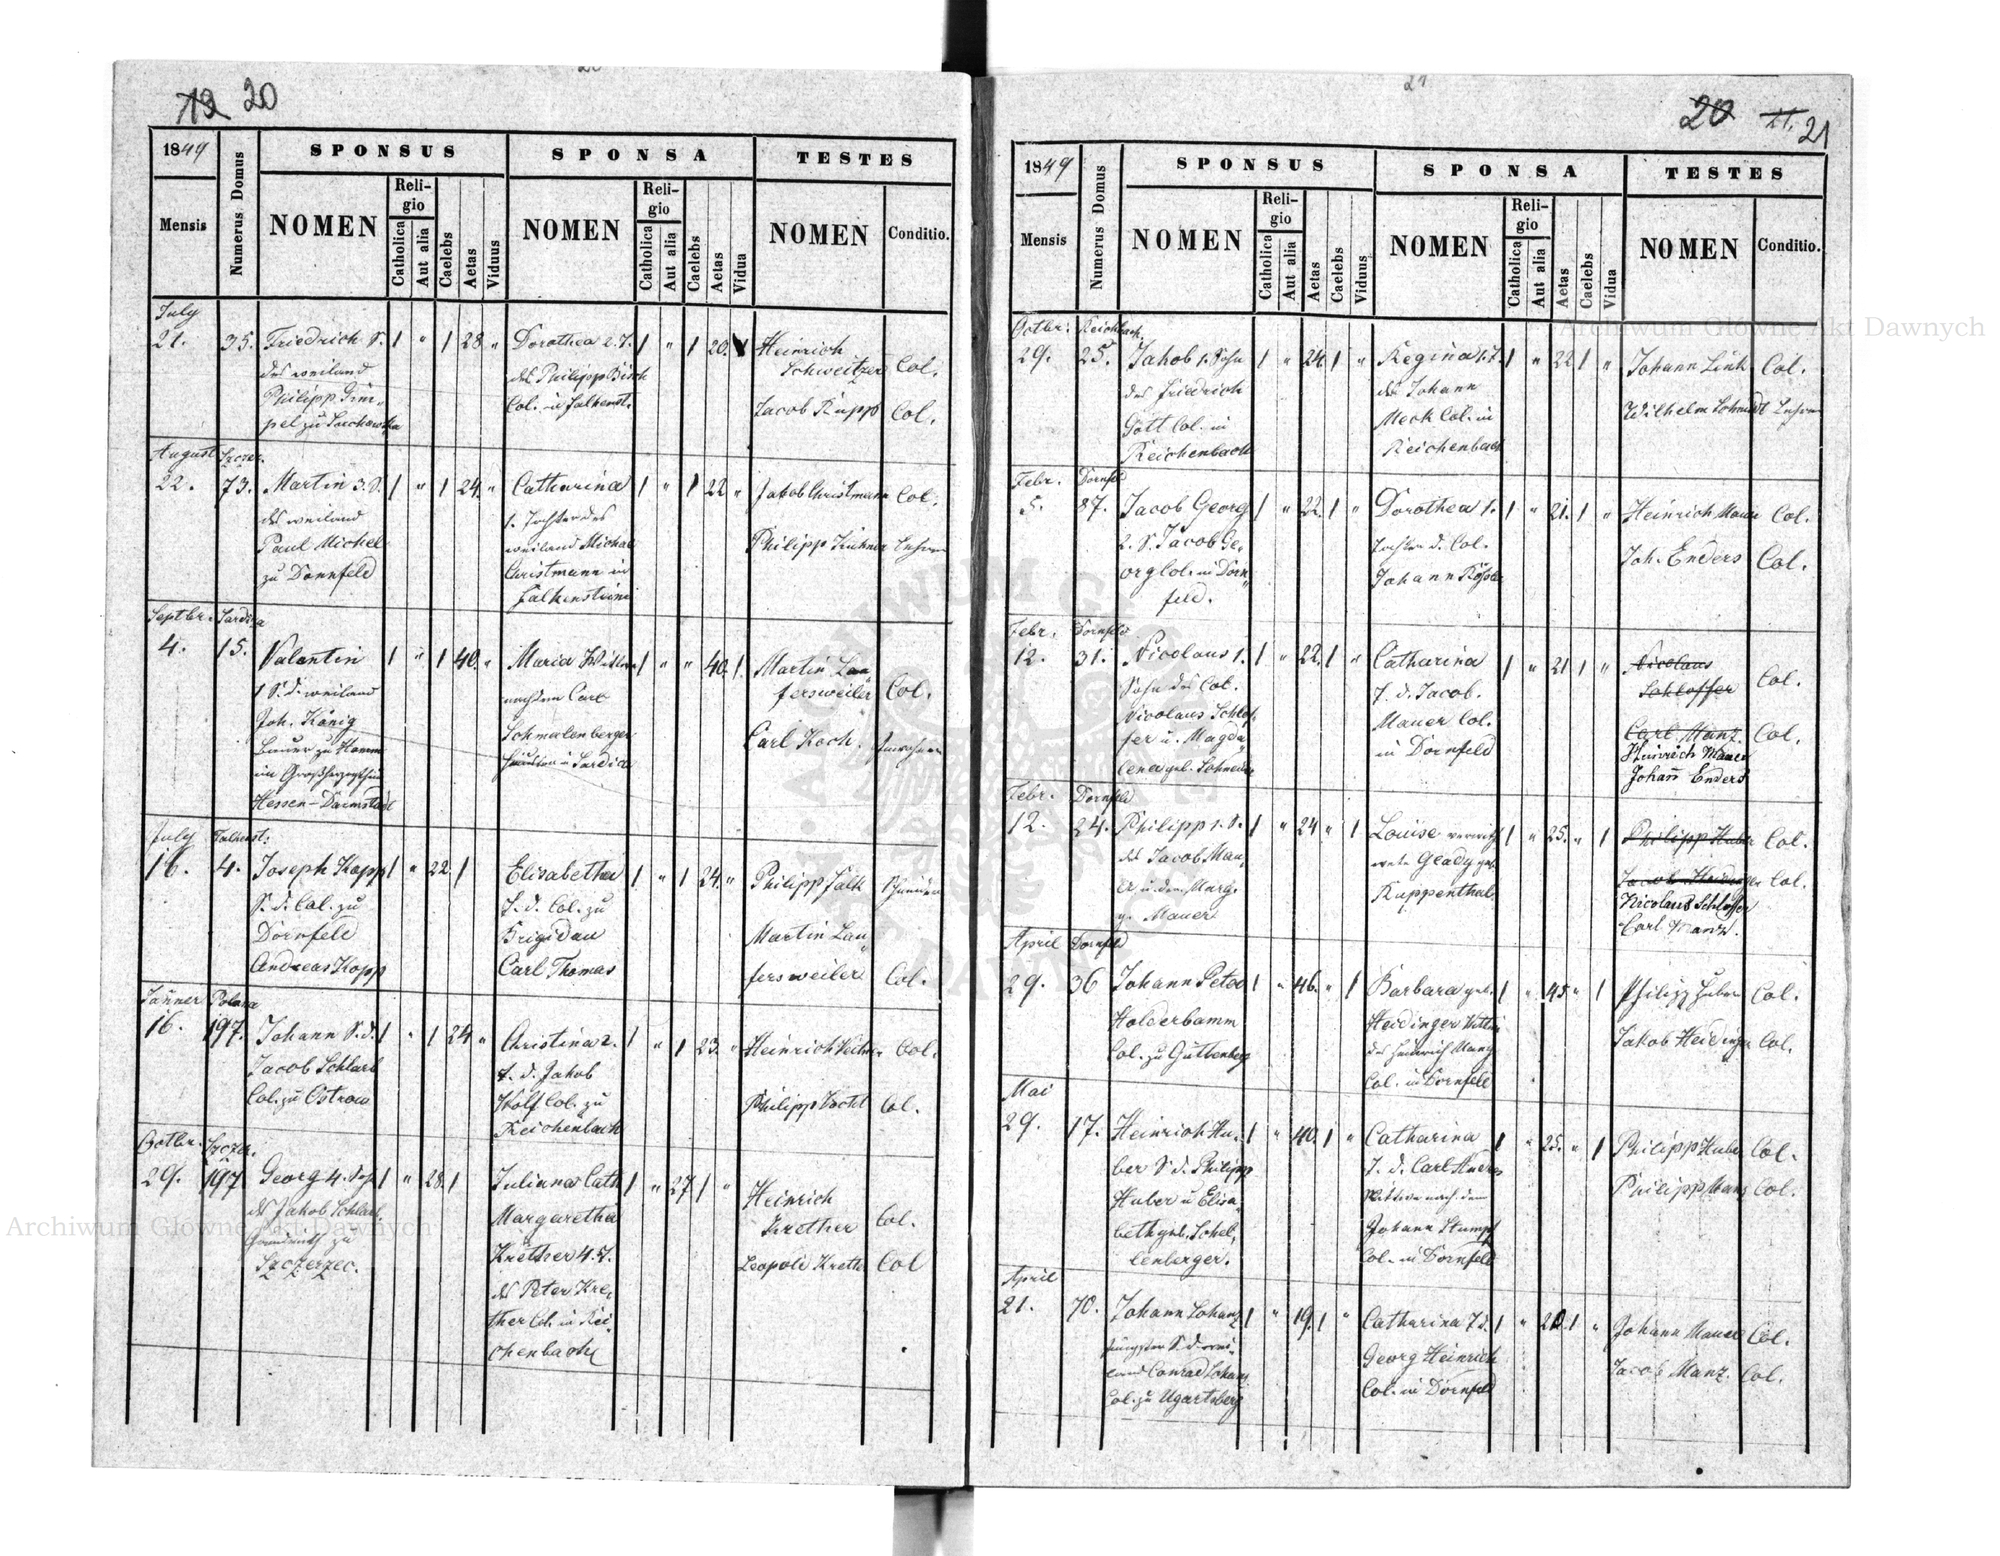 12 20
1849
Numerus Domus
SPONSUS
SPONSA
TESTES
Mensis
NOMEN
Religio
Catholica
Aut alia
Caelebs
Aetas
Viduus
NOMEN
Religio
Catholica
Aut alia
Caelebs
Aetas
Vidua
NOMEN
Conditio.
July
21. 35. Friedrich S. 1 " 1 28 " Dorothea 2. T. 1 " 1 20. Heinrich
des weiland des Philipp Schweitzer Col.
Philipp Gim-
pel zu Col. in Falkenst. Jacob Rupp Col.
August Szczer.
22. 73. Martin 3. S. 1 " 1 24. " Catharina 1 " 1 22 " Jakob Christmann Col.
des weiland 1. Tochter des
Paul Michel weiland Michael Philipp Kühner Lehrer
zu Dornfeld Christmann in
Falkenstein
Septbr. Sardia
4. 15. Valentin 1 " 1 40. " Maria Witwe 1 " " 40. 1. Martin Lau-
1 S. d. weiland nach dem Carl fersweiler Col.
Joh. König Schmalenberger
Bauer zu Hamm in Sardia Carl Koch.
im Großherzogthum
Hessen-Darmstadt
July Falkenst.
16. 4. Joseph Kopp 1 " 22. 1 Elisabetha 1 " 1 24. " Philipp Falk
S. d. Col. zu T. d. Col. zu
Dornfeld Brigidau Martin Lau-
Andreas Kopp Carl Thomas fersweiler Col.
Jänner Polana
16. 197. Johann S. d. 1 " 1 24 " Christina 2. 1 " 1 23. " Heinrich Col.
Jacob Schlarb T. d. Jakob
Col. zu Ostrow Wolf Col. zu Philipp Col.
Reichenbach
Octbr. Szczer.
29. 197 Georg 4. Sohn 1 " 28. 1 Juliana Cath 1 " 27 1 " Heinrich
des Jakob Schlarb Margaretha Krether Col.
zu Krether 4. T.
Szczerzec. des Peter Kre- Leopold Kreth Col
ther Col. in Rei-
chenbach
20 21. 21
1849
Numerus Domus
SPONSUS
SPONSA
TESTES
Mensis
NOMEN
Religio
Catholica
Aut alia
Aetas
Caelebs
Viduus
NOMEN
Religio
Catholica
Aut alia
Aetas
Caelebs
Vidua
NOMEN
Conditio.
Octbr. Reichbach.
29. 25. Jakob 1. Sohn 1 " 24. 1 " Regina 1. T. 1 " 22 1 " Johann Link Col.
des Friedrich des Johann
Gött Col. in Meck Col. in Wilhelm Schmidt Lehrer
Reichenbach Reichenbach
Febr. Dornfeld
5. 87. Jacob Georg 1 " 22. 1 " Dorothea 1. 1 " 21. 1 " Heinrich Mauer Col.
2. S. Jacob Ge- Tochter d. Col.
org Col. in Dorn- Johann Joh. Enders Col.
feld.
Febr. Dornfeld
12. 31. Nicolaus 1. 1 " 22. 1 " Catharina 1 " 21 1 " Nicolaus
Sohn des Col. T. d. Jacob. Schlosser Col.
Nicolaus Schlos- Mauer Col. Carl Manz. Col.
ser u. Magda- in Dornfeld Heinrich Mauer
lena geb. Schneider Johann Enders
Febr. Dornfeld
12. 24. Philipp 1. S. 1 " 24 " 1 Louise verwitt- 1 " 25. " 1 Philipp Huber Col.
des Jacob Mau- wete Geady geb.
er u. der Marg. Ruppenthal Jacob Heidinger Col.
g. Mauer Nicolaus Schlosser
Carl Manz.
April Dornfeld
29. 36 Johann Peter 1 " 46. " 1 Barbara geb. 1 " 45 " 1 Philipp Huber Col.
Holderbamm Heidinger Wittwe
Col. zu Guttenberg des Heinrich Manz Jakob Heidinger Col.
Col. in Dornfeld
Mai
29. 17. Heinrich Hu- 1 " 40. 1 " Catharina 1 " 25. " 1 Philipp Huber Col.
ber S. d. Philipp T. d. Carl
Huber u Elisa- Wittwe nach dem Philipp Manz Col.
beth geb. Schel- Johann Stumpf
lenberger. Col. in Dornfeld
April
21. 70. Johann Lohanz 1 " 19. 1 " Catharina T d. 1 " 20. 1 " Johann Mauer Col.
jüngster S. d. wei- Georg Heinrich
land Conrad Lohanz Col. in Dornfeld Jacob Manz. Col.
Col. zu Ugartsberg
Archiwum Główne Akt Dawnych
Archiwum Główne Akt Dawnych